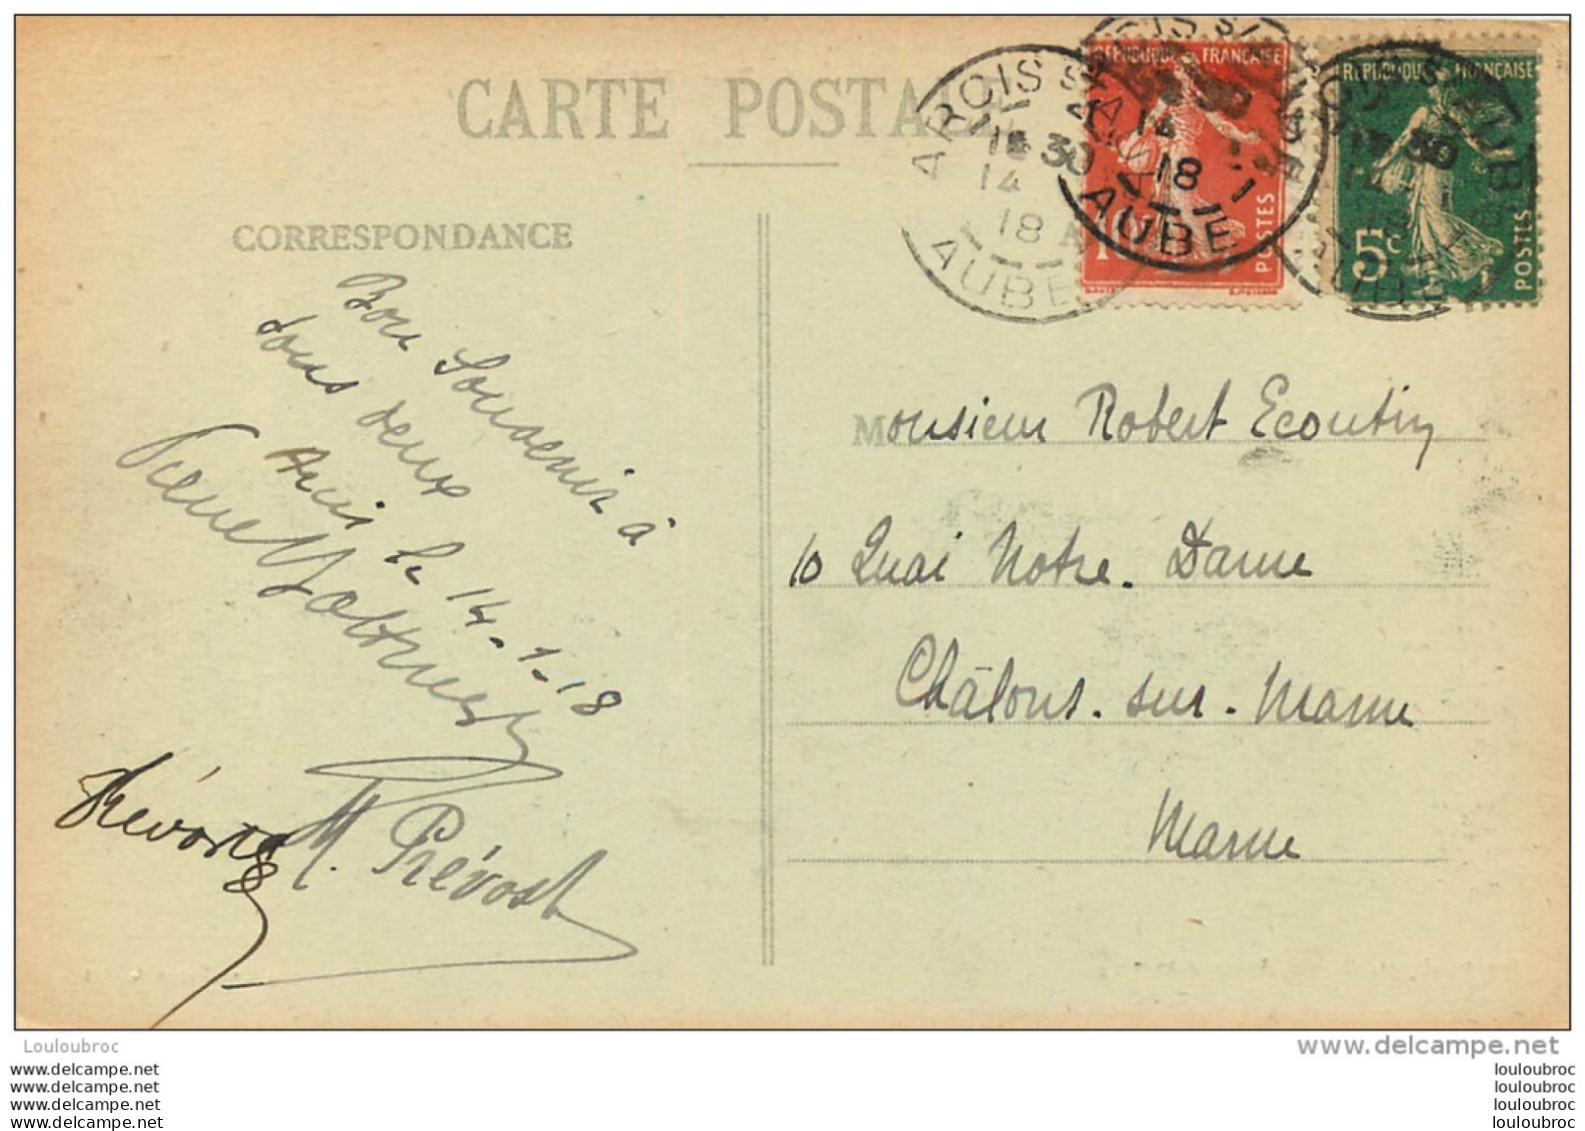 CARTE POSTALE
ARCIS S/ AUBE
14 30
14 1
18
AUBE
REPUBLIQUE FRANCAISE
10
POSTES
REPUBLIQUE FRANCAISE
5c
POSTES
CORRESPONDANCE
Bon Souvenir à
tous deux
Arcis le 14-1-18
Pierre
Prévost
M. Prévost
Monsieur Robert Ecoutin
10 Quai Notre-Dame
Châlons-sur-Marne
Marne
Louloubroc
www.delcampe.net
www.delcampe.net
www.delcampe.net
www.delcampe.net
www.delcampe.net
louloubroc
louloubroc
louloubroc
louloubroc